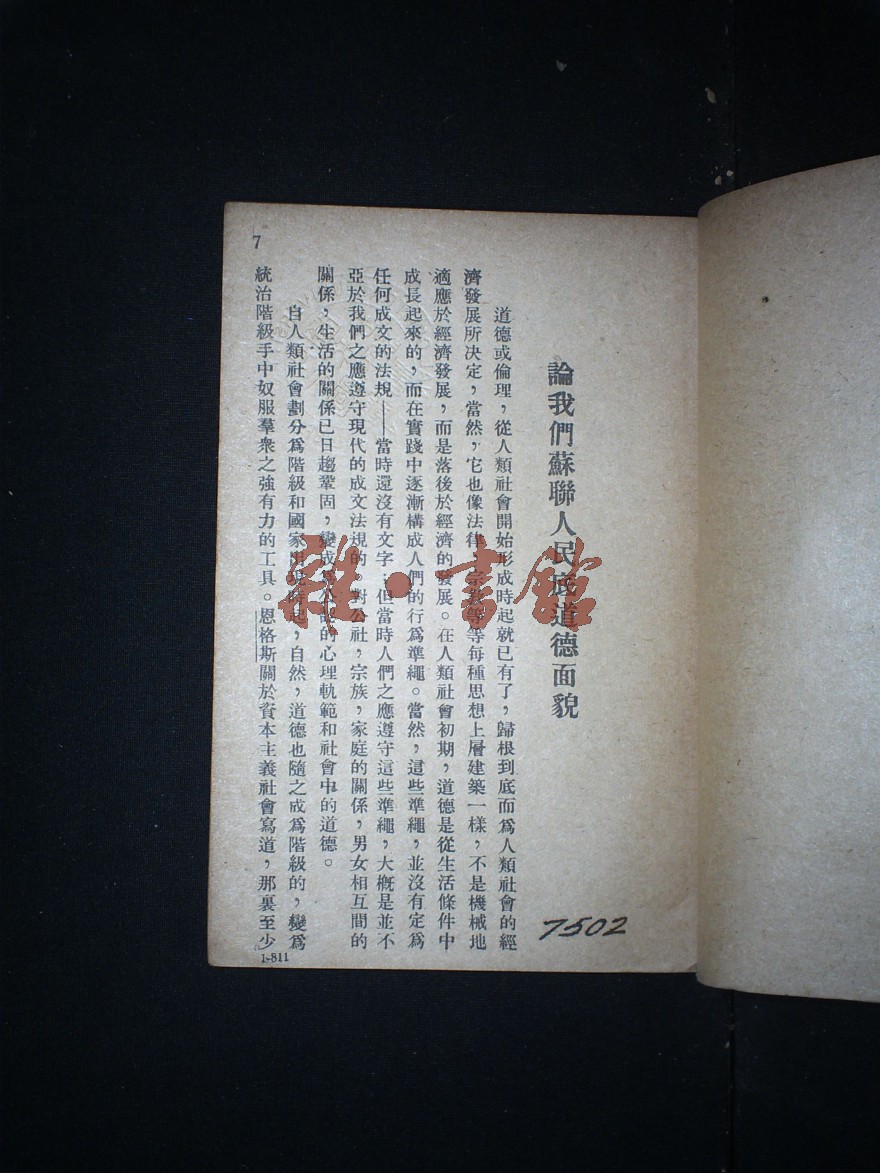 論我們蘇聯人民底道德面貌
道德或倫理，從人類社會開始形成時起就已有了，歸根到底而爲人類社會的經
濟發展所決定，當然，它也像法律，宗教等等每種思想上層建築一樣，不是機械地
適應於經濟發展，而是落後於經濟的發展。在人類社會初期，道德是從生活條件中
成長起來的，而在實踐中逐漸構成人們的行爲準繩。當然，這些準繩，並沒有定爲
任何成文的法規——當時還沒有文字；但當時人們之應遵守這些準繩，大概是並不
亞於我們之應遵守現代的成文法規的。對公社，宗族，家庭的關係，男女相互間的
關係，生活的關係已日趨鞏固，變成爲的心理軌範和社會中的道德。
自人類社會劃分爲階級和國家出現時起，自然，道德也隨之成爲階級的，變爲
統治階級手中奴服羣衆之強有力的工具。恩格斯關於資本主義社會寫道，那裏至少
7
1-811
7502
雜·書館